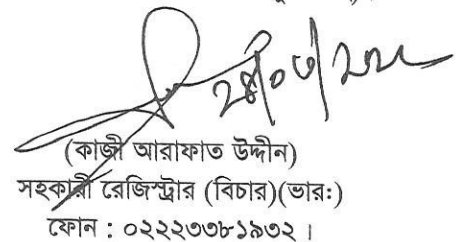 (কাজী আরাফাত উদ্দীন)
সহকারী রেজিস্ট্রার (বিচার)(ভার:)
ফোন : ০২২২৩৩৮১৯৩২।